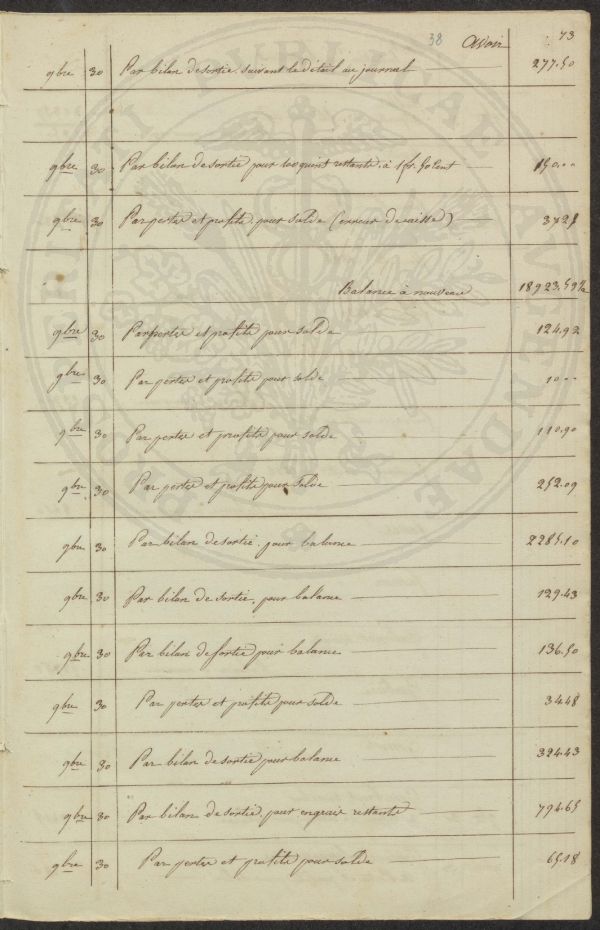 38 Avoir 73
9bre 30 Par bilan de sortie suivant le détail au journal 277.50
9bre 30 Par bilan de sortie pour 100 quint restants à 1 fr. 50 Cent 150..
9bre 30 Par pertes et profits pour solde (erreur de caisse)
Balance à nouveau 18923.59½
9bre 30 Par pertes et profits pour solde 124.92
9bre 30 Par pertes et profits pour solde 10..
9bre 30 Par pertes et profits pour solde 110.90
9bre 30 Par pertes et profits pour solde 252.09
9bre 30 Par bilan de sortie pour balance 2285.10
9bre 30 Par bilan de sortie, pour balance 129.43
9bre 30 Par bilan de sortie pour balance 136.50
9bre 30 Par pertes et profits pour solde 34.48
9bre 30 Par bilan de sortie pour balance 324.43
9bre 30 Par bilan de sortie, pour engrais restants 794.65
9bre 30 Par pertes et profits pour solde 65.18